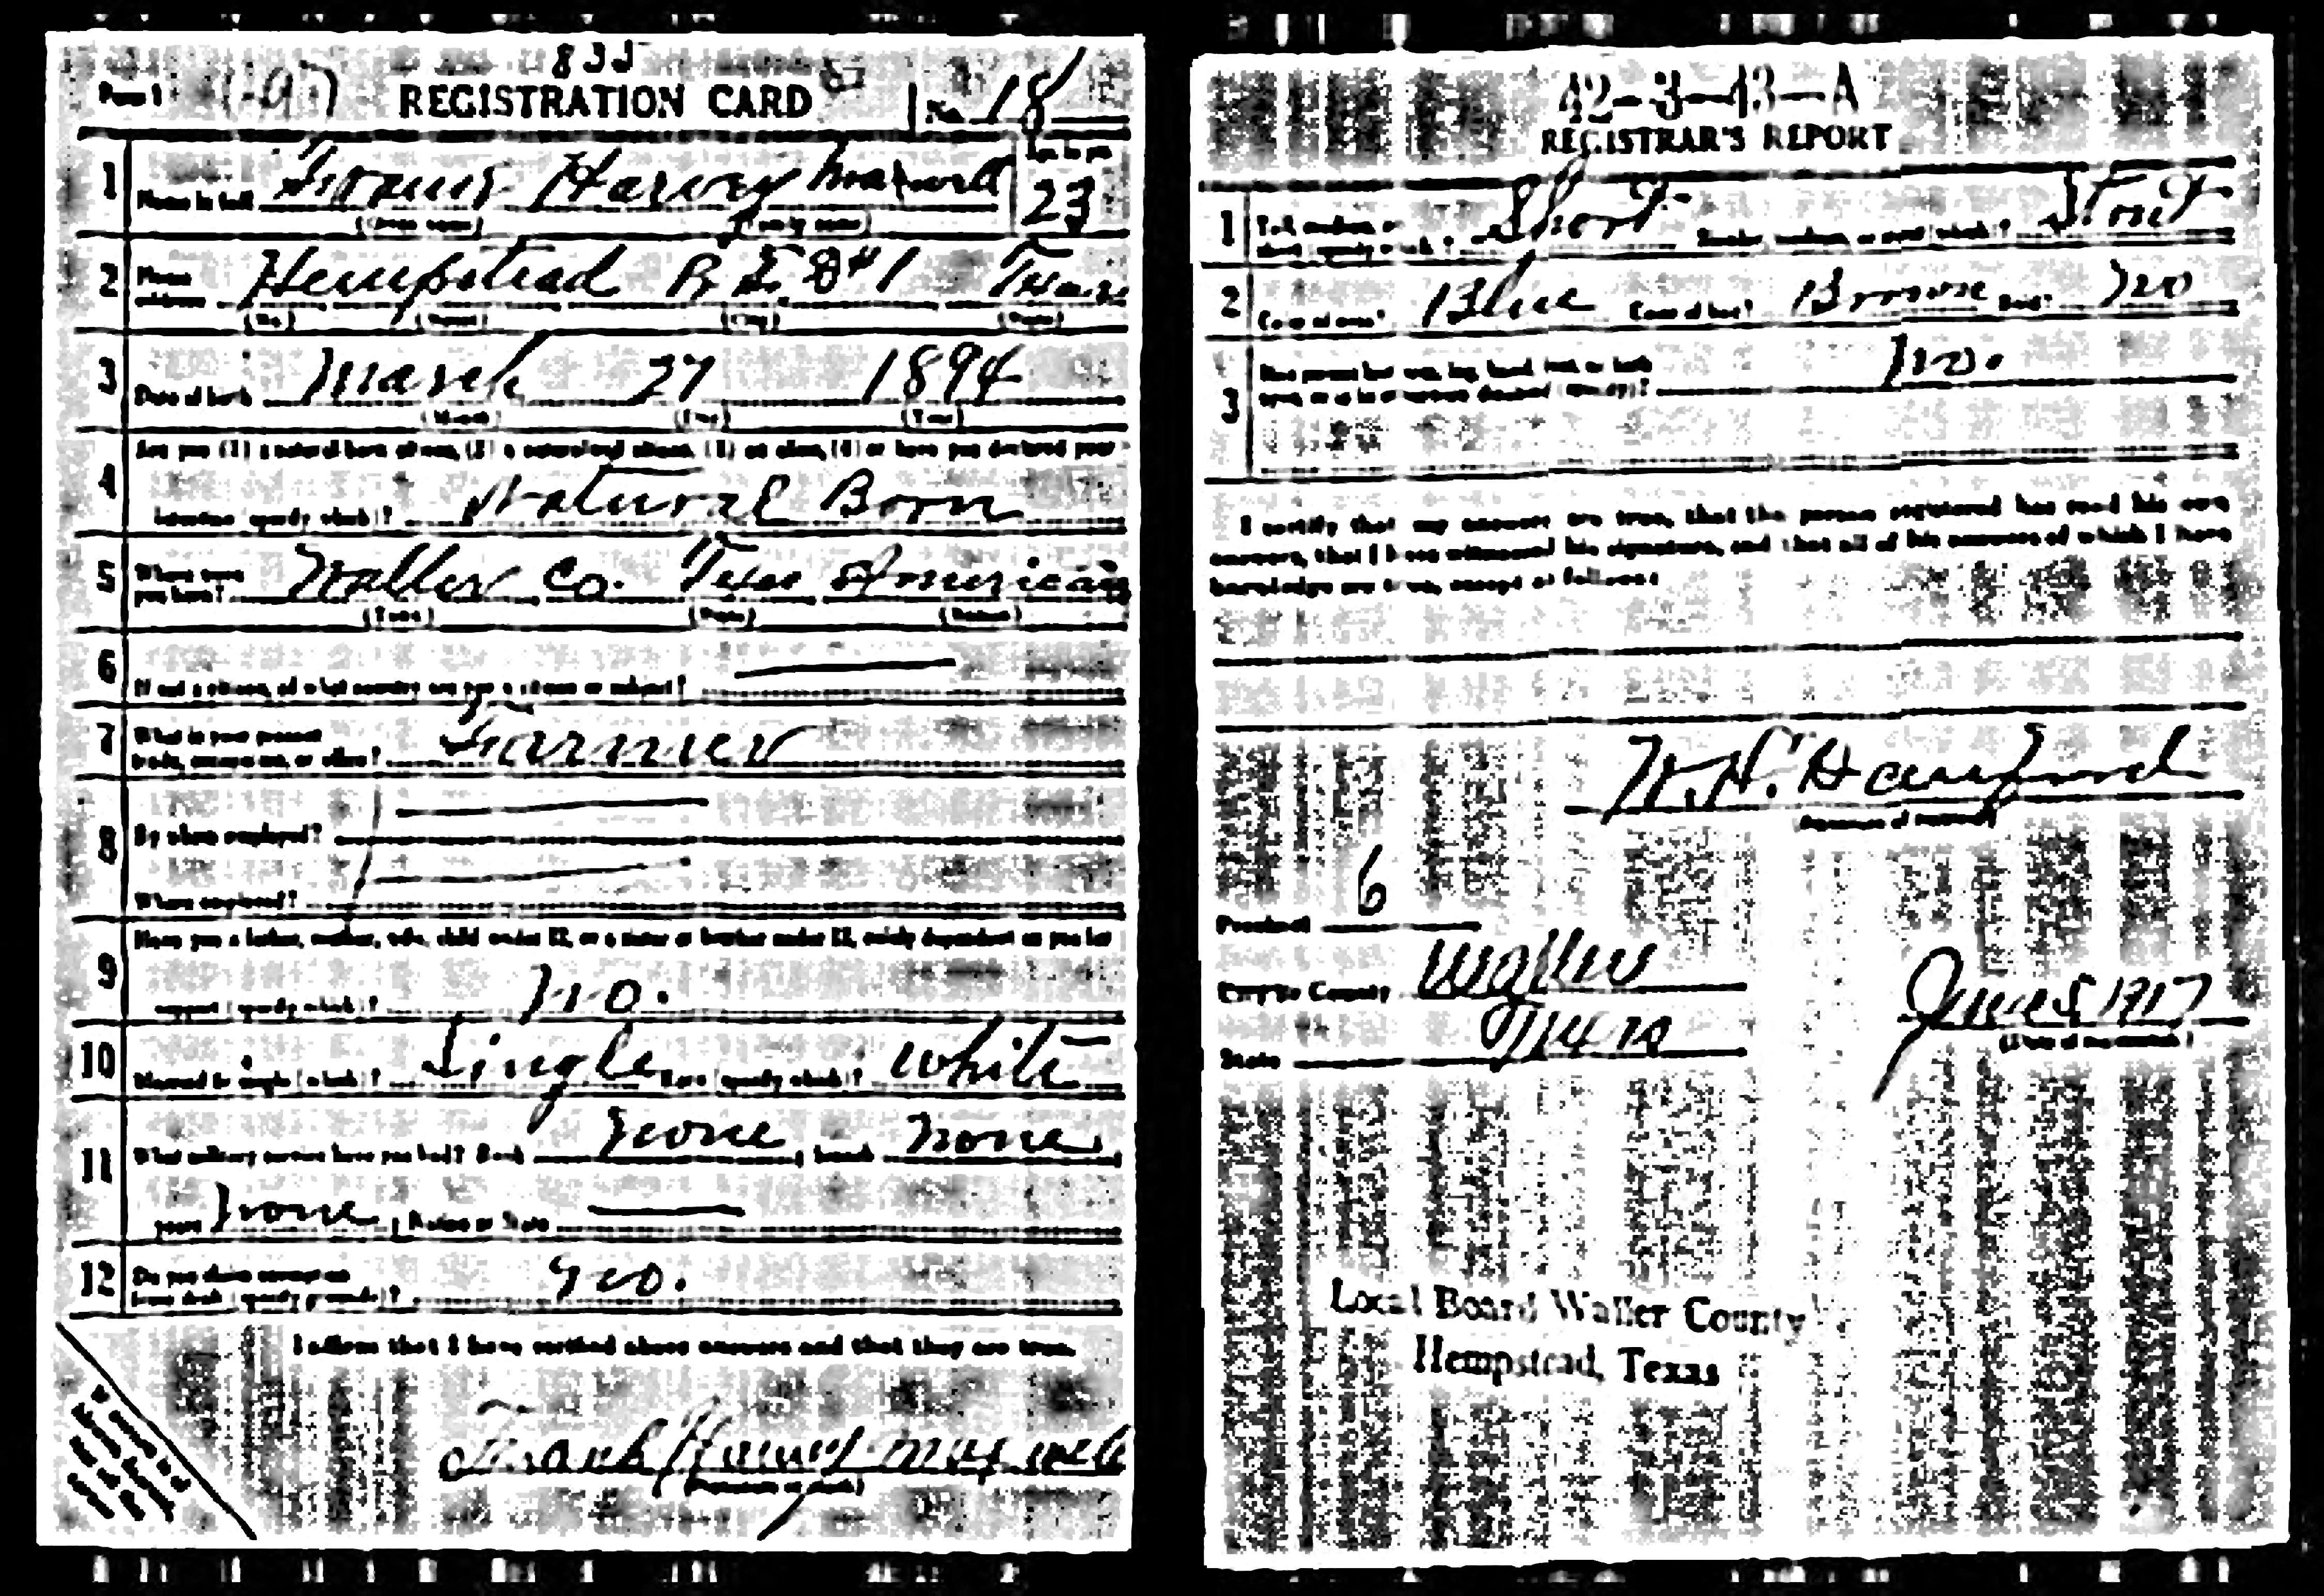 REGISTRATION CARD No. 18
1 Name in full Harvey Maxwell 23
(Given name) (Family name)
2 Home address Hempstead #1 Texas
(No.) (Street) (City) (State)
3 Date of birth March 27 1894
(Month) (Day) (Year)
4 Are you (1) a natural born citizen, (2) a naturalized citizen, (3) an alien, (4) or have you declared your
intention (specify which)? Natural Born
5 Where were you born? Waller Co. Texas American
(Town) (State) (Nation)
6 If not a citizen, of what country are you a citizen or subject?
7 What is your present trade, occupation, or office? Farmer
8 By whom employed?
Where employed?
9 Have you a father, mother, wife, child under 12, or a sister or brother under 12, solely dependent on you for
support (specify which)? No.
10 Married or single (which)? Single Race (specify which)? White
11 What military service have you had? Rank None branch None
years None Nation or State
12 Do you claim exemption from draft (specify grounds)? No.
I affirm that I have verified above answers and that they are true.
Frank Harvey Maxwell
42-3-13-A
REGISTRAR'S REPORT
1 Tall, medium, or short (specify which)? Short Slender, medium, or stout (which)? Stout
2 Color of eyes? Blue Color of hair? Brown Bald? No
3 Has person lost arm, leg, hand, foot, or both No.
I certify that my answers are true, that the person registered has read his own
answers, that I have witnessed his signature, and that all of his answers of which I have
knowledge are true, except as follows:
(Signature of registrar)
Precinct 6
City or County Waller
State Texas June 5 1917
(Date of registration)
Local Board Waller County
Hempstead, Texas